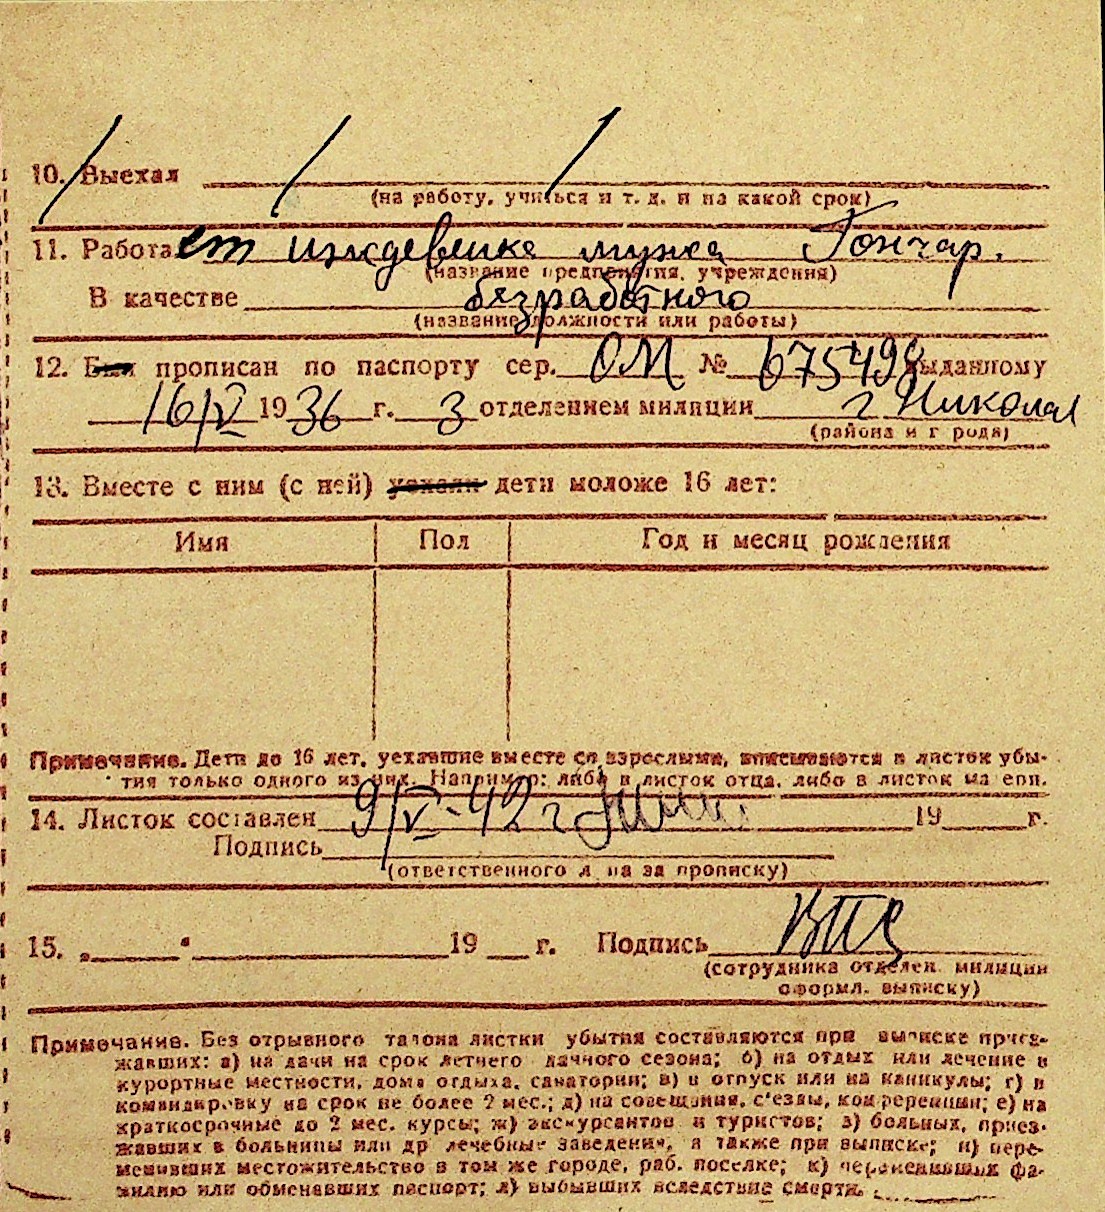 10. Выехал
(на работу, учиться и т. д. и на какой срок)
11. Работает иждевенка мужа Гончар.
(название предприятия, учреждения)
В качестве безработного
(название должности или работы)
12. Был прописан по паспорту сер. ОМ № 675498 выданному
16/V 1936 г. 3 отделением милиции г Николая
(района и города)
13. Вместе с ним (с ней) уехали дети моложе 16 лет:
Имя Пол Год и месяц рождения
Примечание. Дети до 16 лет, уехавшие вместе со взрослыми, вписываются в листок убы-
тия только одного из них. Например: либо в листок отца, либо в листок матери.
14. Листок составлен 9/V-42 г 19 г.
Подпись
(ответственного лица за прописку)
15. „ “ 19 г. Подпись
(сотрудника отделен. милиции
оформл. выписку)
Примечание. Без отрывного талона листки убытия составляются при выписке приез-
жавших: а) на дачи на срок летнего дачного сезона; б) на отдых или лечение в
курортные местности, дома отдыха, санатории; в) в отпуск или на каникулы; г) в
командировку на срок не более 2 мес.; д) на совещания, с'езды, конференции; е) на
краткосрочные до 2 мес. курсы; ж) экскурсантов и туристов; з) больных, приез-
жавших в больницы или др лечебные заведения, а также при выписке; и) пере-
менивших местожительство в том же городе, раб. поселке; к) переменивших фа-
милию или обменявших паспорт; л) выбывших вследствие смерти.